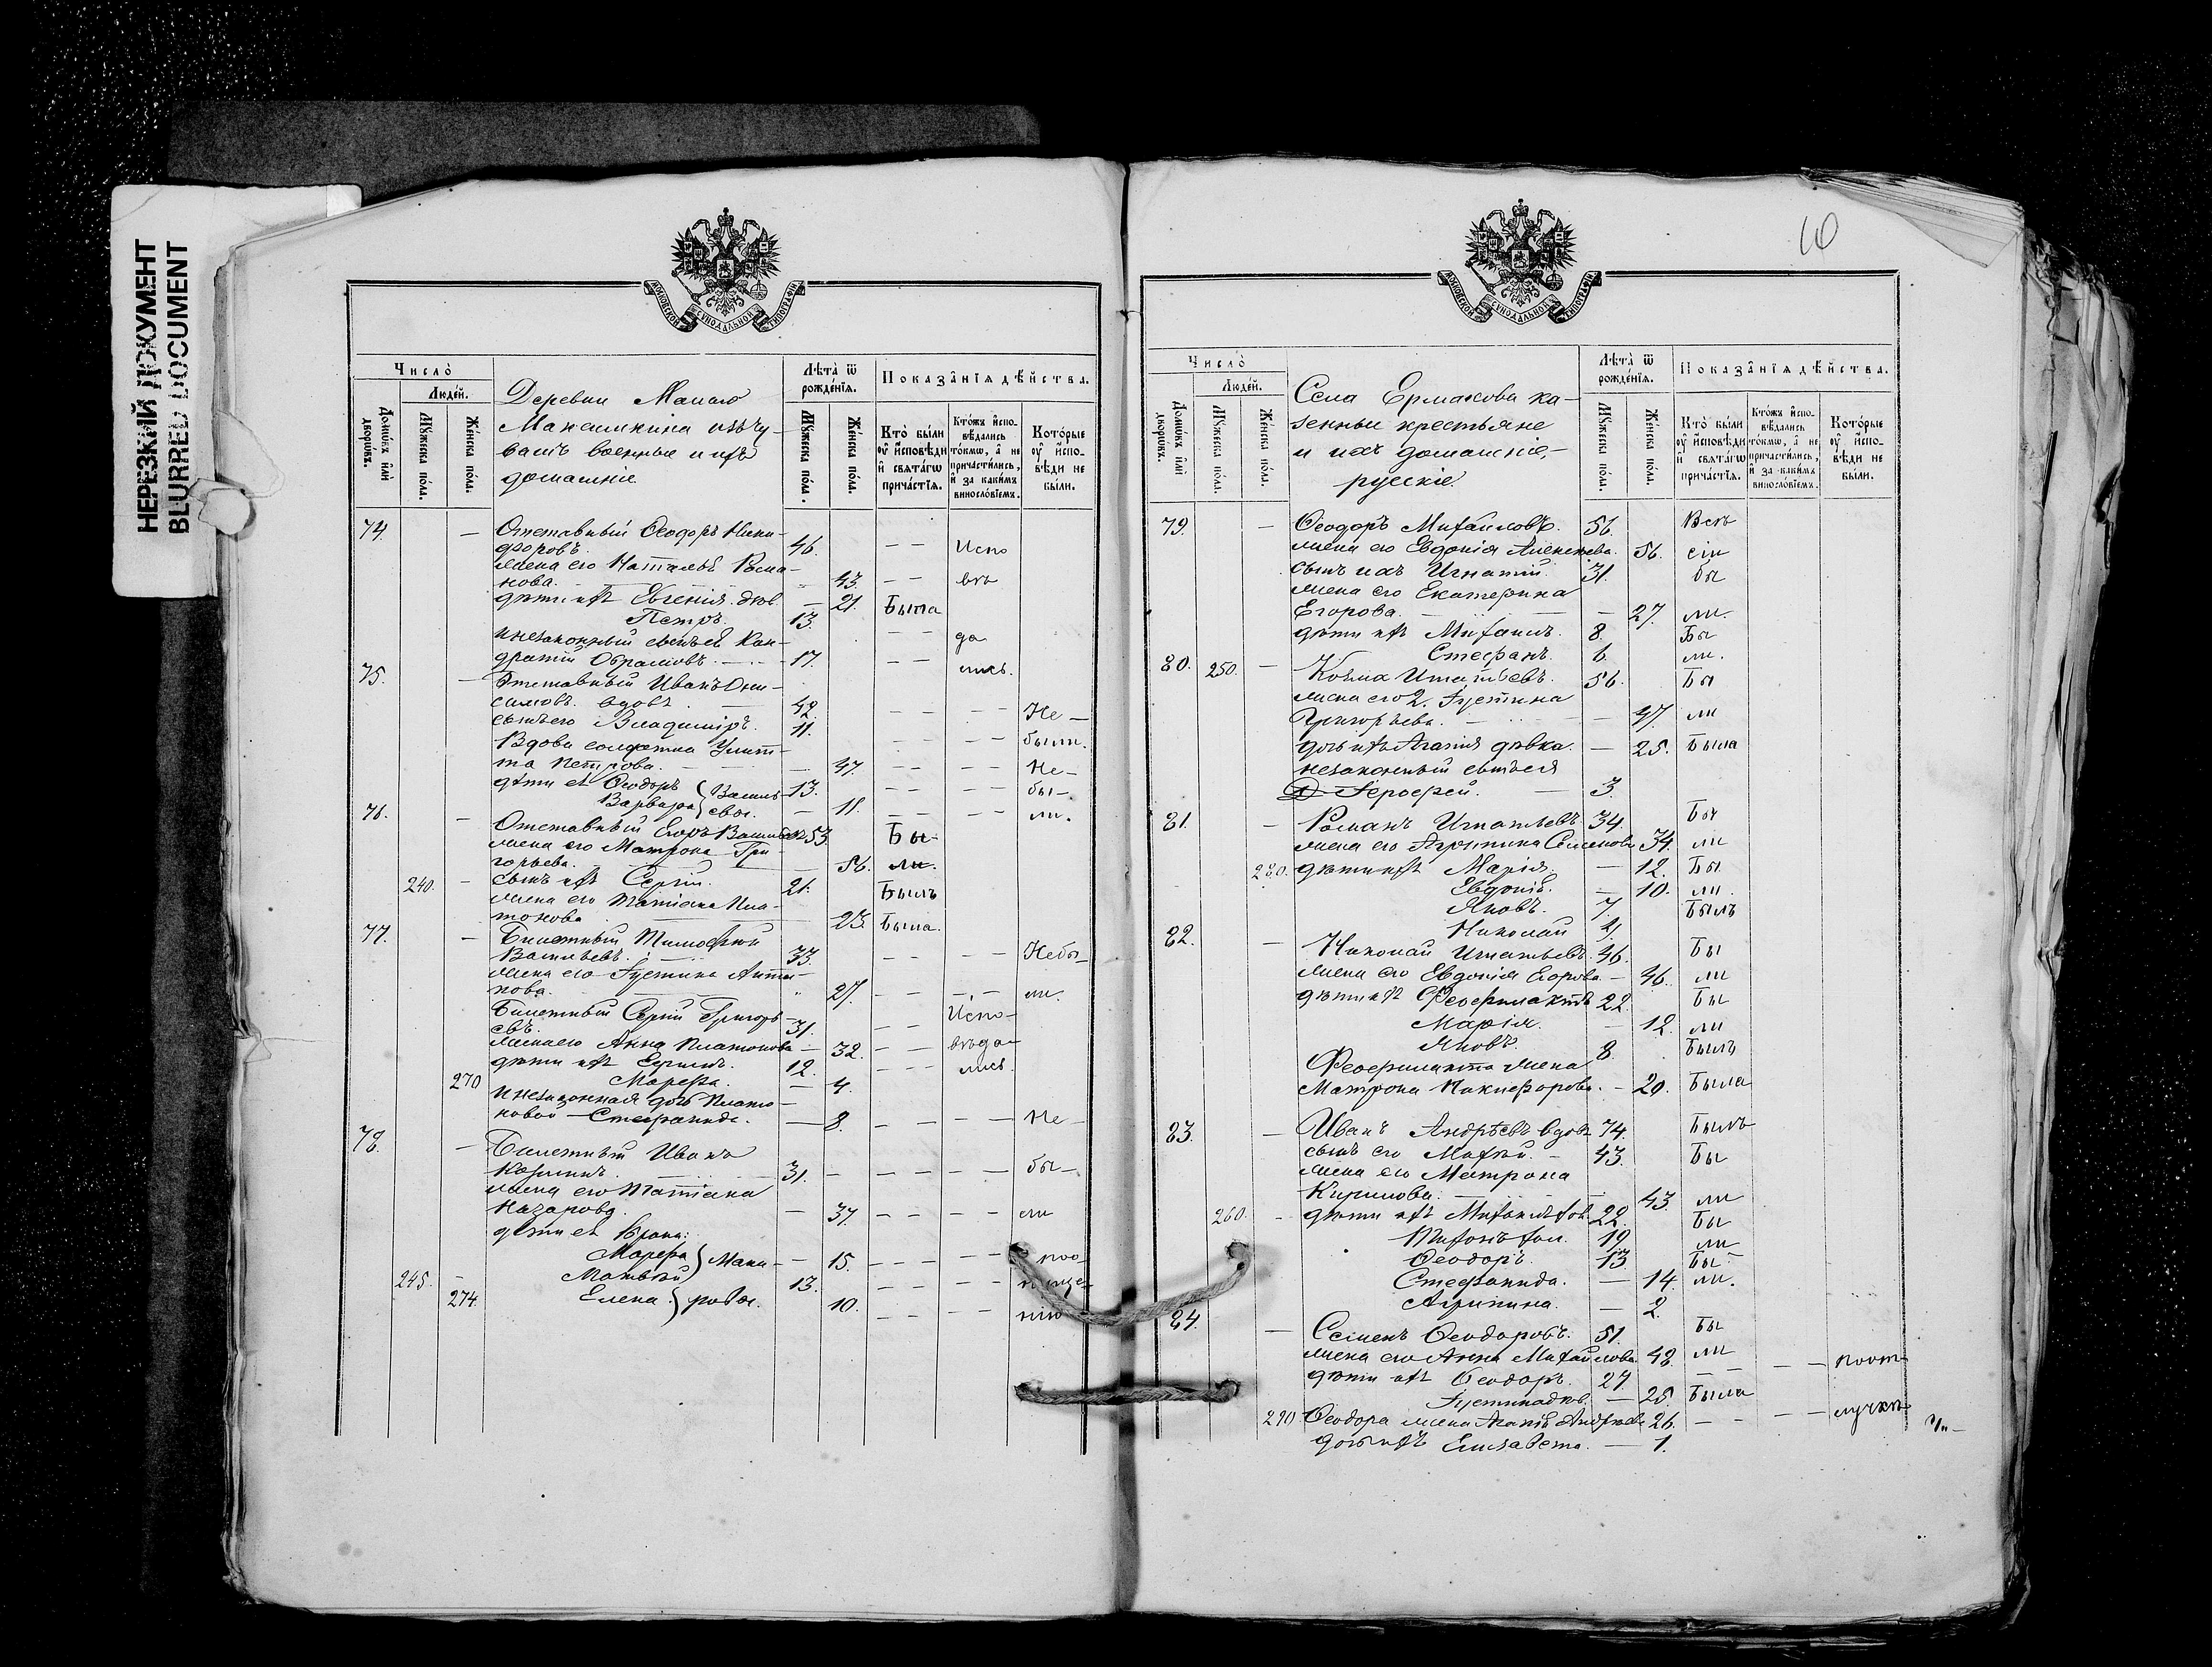 НЕРЕЗКИЙ ДОКУМЕНТ
BLURRED DOCUMENT
МОСКОВСКОЙ СУНОДАЛЬНОЙ ТИПОГРАФІИ
Число̀
Людей.
Домѡвъ и҆лѝ дворѡвъ.
Мꙋжеска пола.
Женска пола.
Деревни Малаго
чу-
вашъ военные и ихъ
домашніе
Лѣта̀ ѿ рожденїѧ.
Мꙋжеска пола.
Женска пола.
Показанїѧ дѣйства.
Кто̀ были ᲂу҆ и҆сповѣди и҆ свѧтагѡ причастїѧ.
Ктожъ и҆споvѣдались токмѡ, а҆ не причастились, и҆ за какимъ винословїемъ.
Которые ᲂу҆ и҆сповѣди не были.
74. — Отставный Ѳеодоръ Ники-
форовъ. 46. — — Испо
жена его Наталья Рома-
нова. 43. — — вѣ
дѣти ихъ Евгенія — 21. Была
Петръ. 13.
незаконный сынъ ея Кон- — — да
дратій 17. — — лись.
75. — Отставный Иванъ Они-
симовъ. вдовъ. 42. — — — — Не —
сынъ его Владиміръ. 11. были.
Вдова солдатка Улит-
та Петрова. 47. — — Не —
дѣти ея Ѳеодоръ Василь- 13. — — — — бы —
Варвара евы. — 11. ли.
76. — Отставный Егоръ Васильевъ 53. Бы-
жена его Матрона Гри-
горьева. 56. ли.
240. — сынъ ихъ Сергій. 21. Былъ
жена его Татіана Пла-
тонова 23. Была.
77. — Билетный Тимоѳей
Васильевъ. 33. — — — — Небы-
жена его Іустина Анти-
пова. 27. — — — — ли.
Билетный Сергій Григорь- Испо-
евъ. 31. — —
жена его Анна Платонова — 32. — — вѣда-
дѣти ихъ 12. — — — лись.
270 Марѳа. — 4.
незаконная дочь Плато-
новой — Стефанида. — 8. — — — — Не —
78. — Билетный Иванъ
Козминъ. 31. — — — — — бы —
жена его Татіана
Назарова. — 37. — — — — ли
дѣти ея брака:
Марѳа Мака- — 15. — — — — поо-
245. — Матвей 13. — — — —
274. Елена. ровы. 10. — — — — нію
10
МОСКОВСКОЙ СУНОДАЛЬНОЙ ТИПОГРАФІИ
Число̀
Людей.
Домѡвъ и҆лѝ дворѡвъ.
Мꙋжеска пола.
Женска пола.
Села Ермакова ка-
зенные крестьяне
и ихъ домашніе,
русскіе.
Лѣта̀ ѿ рожденїѧ.
Мꙋжеска пола.
Женска пола.
Показанїѧ дѣйства.
Кто̀ были ᲂу҆ и҆сповѣди и҆ свѧтагѡ причастїѧ.
Ктожъ и҆сповѣдались токмѡ, а҆ не причастились, и҆ за какимъ винословїемъ.
Которые ᲂу҆ и҆сповѣди не были.
79. — Ѳеодоръ Михайловъ. 56. Всѣ
жена его Евдокія Алексѣева. 56. сіи
сынъ ихъ Игнатій. 31. бы
жена его Екатерина
Егорова. — 27. ли.
дѣти ихъ Михаилъ. 8. Бы
Стефанъ. 6. ли.
80. 250. — Козма Игнатьевъ. 56. Бы
жена его 2. Іустина
Григорьева. — 47 ли
дочь ихъ Агапія дѣвка. — 25. Была
незаконный сынъ ея
Іероѳей. — 3.
81. — Романъ Игнатьевъ. 34. Бы
жена его Агрипина Семенова 34. ли
280. дѣти ихъ Марія. — 12. Бы
Евдокія. — 10. ли.
Яковъ. 7. Былъ
Николай 4.
82. — Николай Игнатьевъ. 46. Бы
жена его Евдокія Егорова — 46. ли
дѣти ихъ Ѳеофилактъ 22. Бы
Марія. — 12. ли
Яковъ. 8. Былъ
Ѳеофилакта жена
Матрона Никифорова. — 20. Была
83. — Иванъ Андрѣевъ вдовъ 74. Былъ
сынъ его Матѳей. — 43. Бы
жена его Матрона
Кирилова. — 43. ли
260. — дѣти ихъ Михаилъ хол. 22. Бы
Тихонъ хол. 19. ли
Ѳеодоръ. 13. Бы
Стефанида. — 14. ли.
Агрипина. — 2.
84. — Семенъ Ѳеодоровъ. 51. Бы
жена его Анна Михайлова. 48. ли
дѣти ихъ Ѳеодоръ. 27. — — — поот-
Іустина дѣв. — 25. Была
290 Ѳеодора жена Агапія Андрѣев. 26. — — — — лучкѣ
дочь ихъ Елисавета. — 1.